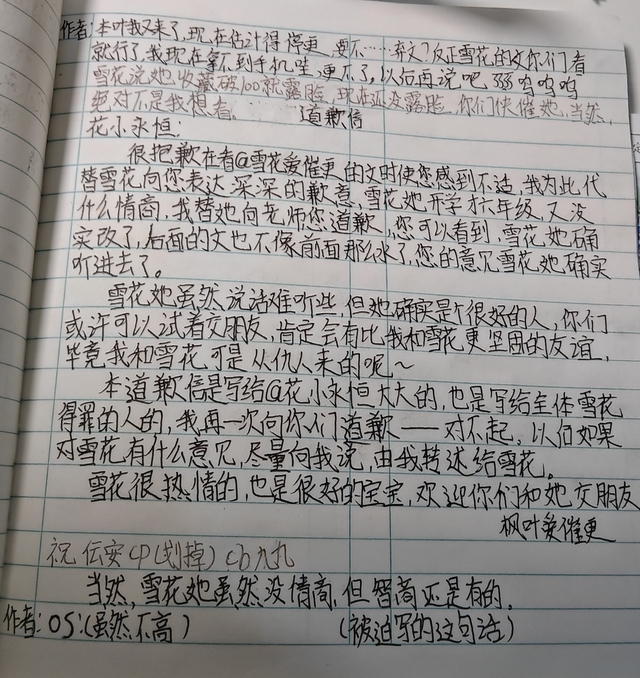 作者:本叶我又来了,现在估计得停更,要不……弃文?反正雪花的文你们看
就行了,我现在拿不到手机,生更不了,以后再说吧,555呜呜呜
雪花说她收藏破100就露脸,现在还没露脸,你们快催她,当然,
绝对不是我想看。 道歉信
花小永恒:
很抱歉在看@雪花爱催更的文时使您感到不适,我为此代
替雪花向您表达深深的歉意,雪花她开学才六年级,又没
什么情商,我替她向老师您道歉,您可以看到,雪花她确
实改了,后面的文也不像前面那么水了,您的意见雪花她确实
听进去了。
雪花她虽然说话难听些,但她确实是个很好的人,你们
或许可以试着交朋友,肯定会有比我和雪花更坚固的友谊,
毕竟我和雪花可是从仇人来的呢~
本道歉信是写给@花小永恒大大的,也是写给全体雪花
得罪的人的,我再一次向你们道歉——对不起。以后如果
对雪花有什么意见,尽量向我说,由我转述给雪花。
雪花很热情的,也是很好的宝宝,欢迎你们和她交朋友
枫叶爱催更
祝伝实cp(划掉)cb九九
当然,雪花她虽然没情商,但智商还是有的。
作者:OS:(虽然不高) (被迫写的这句话)